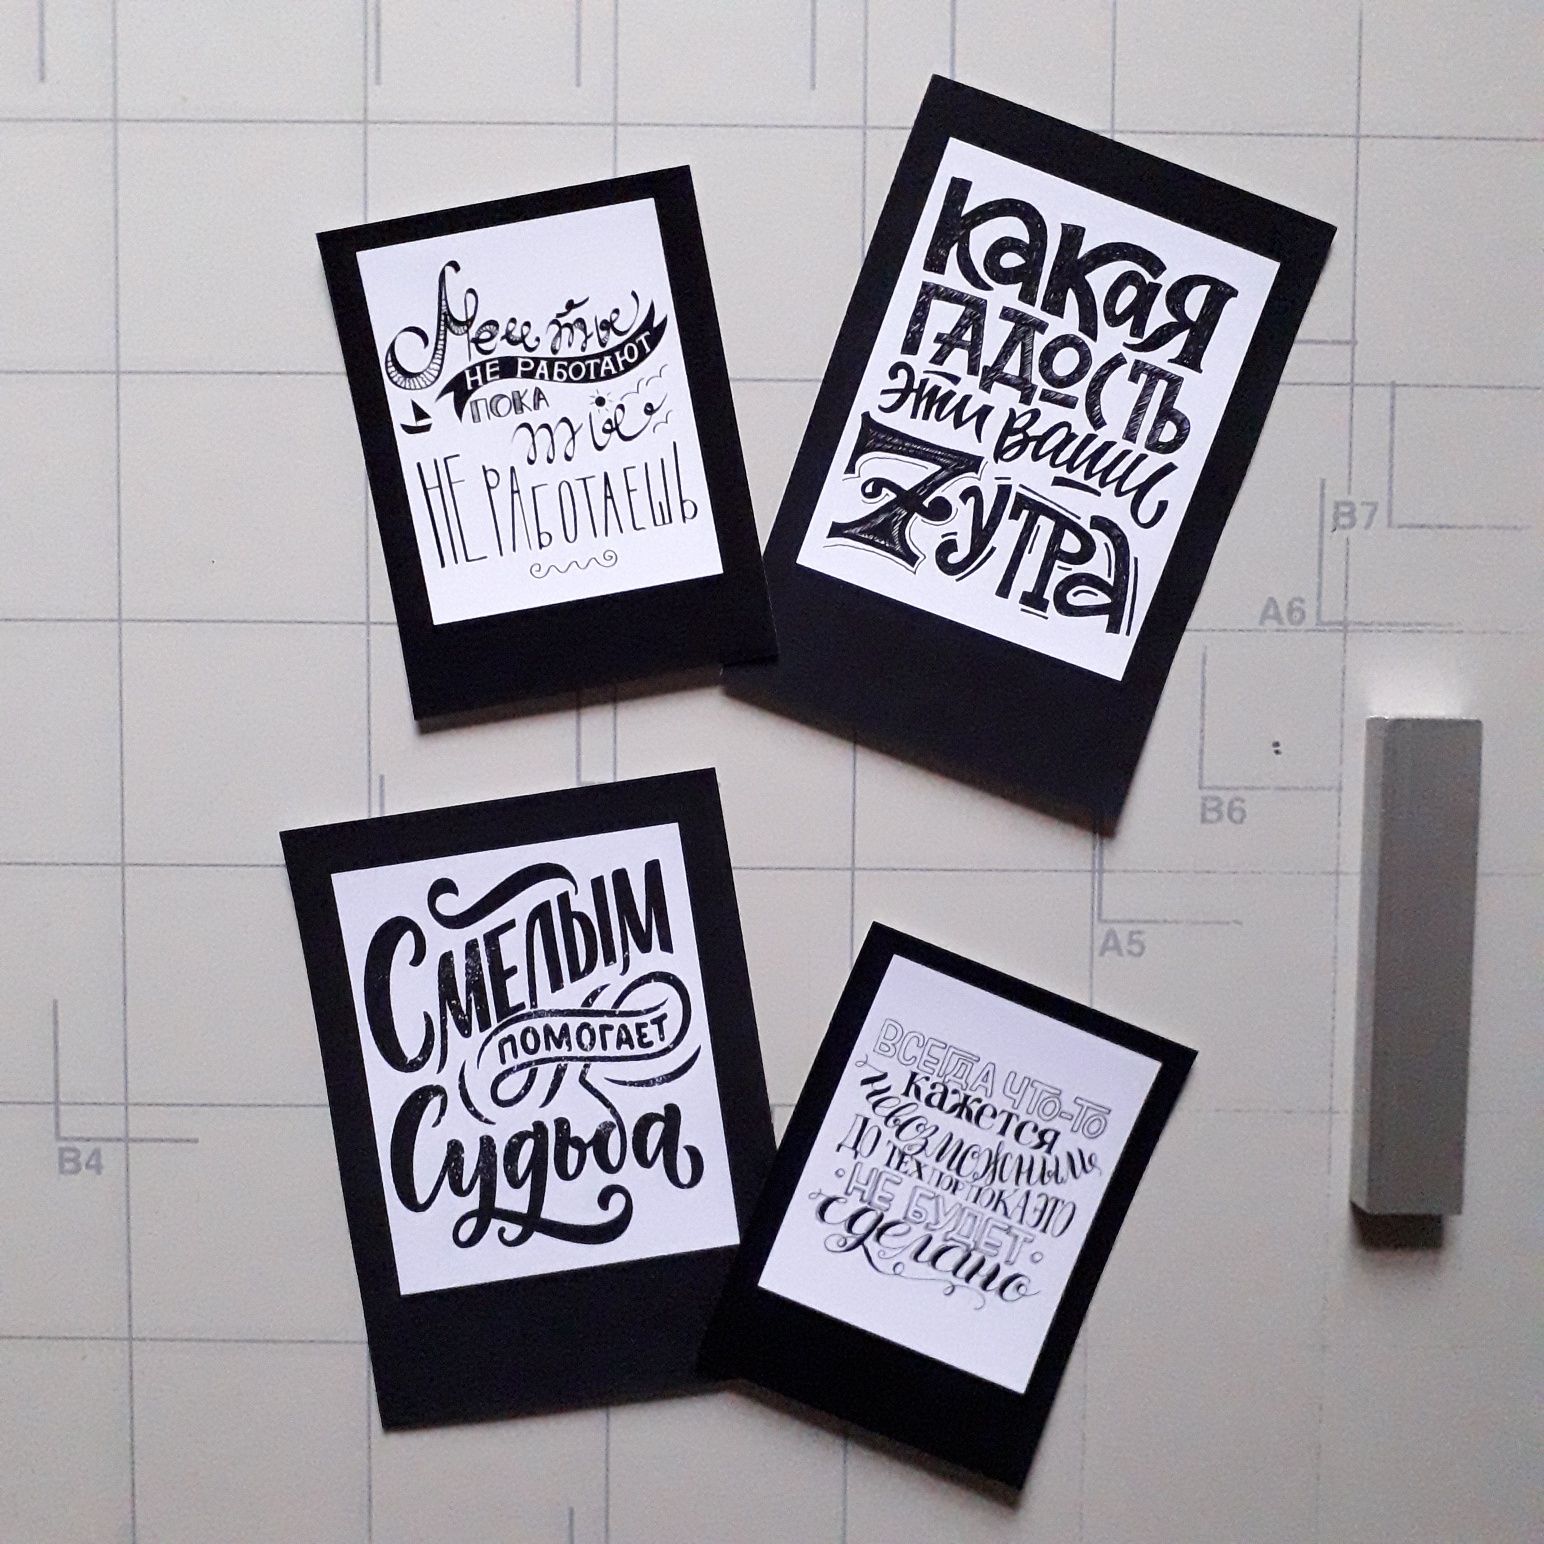 Мечты
НЕ РАБОТАЮТ
ПОКА
ты
НЕ РАБОТАЕШЬ
КАКАЯ
ГАДОСТЬ
эти ваши
7 УТРА
СМЕЛЫМ
ПОМОГАЕТ
Судьба
ВСЕГДА ЧТО-ТО
кажется
невозможным
ДО ТЕХ ПОР ПОКА ЭТО
НЕ БУДЕТ
сделано
B7
A6
B6
A5
B4